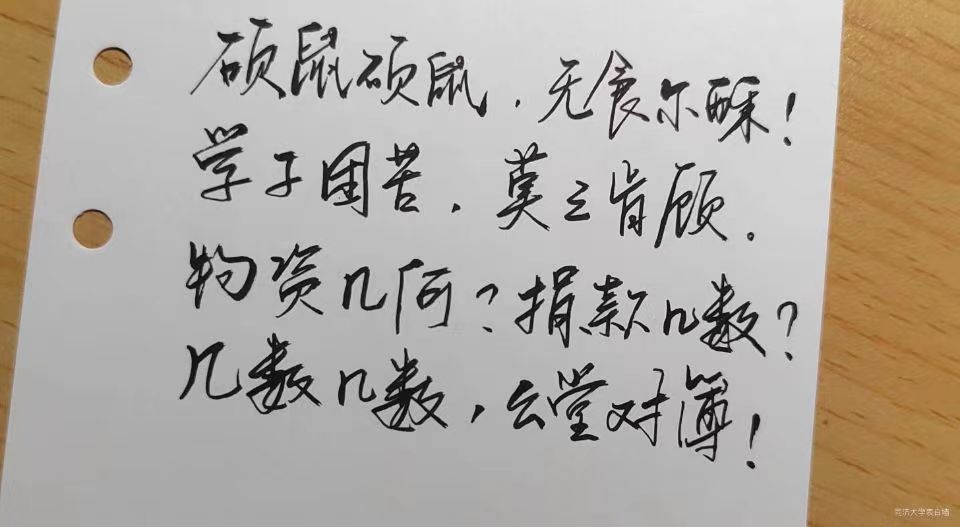 硕鼠硕鼠，无食尔酥！
学子困苦，莫之肯顾。
物资几何？捐款几数？
几数几数，公堂对簿！
同济大学表白墙